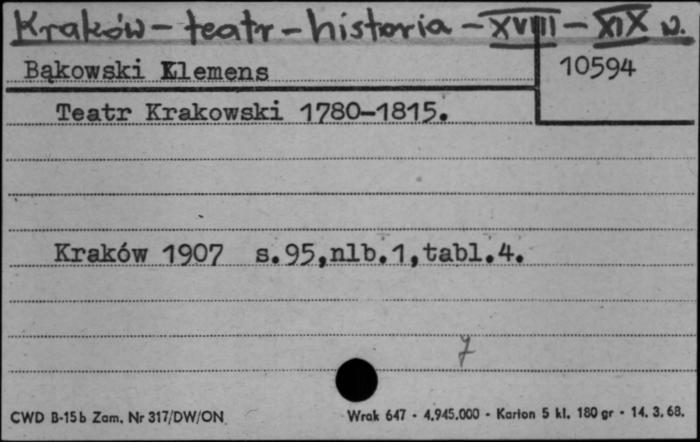 Kraków – teatr – historia – XVIII – XIX w.
Bąkowski Klemens
10594
Teatr Krakowski 1780–1815.
Kraków 1907 s.95,nlb.1,tabl.4.
7
CWD B-15b Zam. Nr 317/DW/ON
Wrak 647 - 4.945.000 - Karton 5 kl. 180 gr - 14. 3. 68.